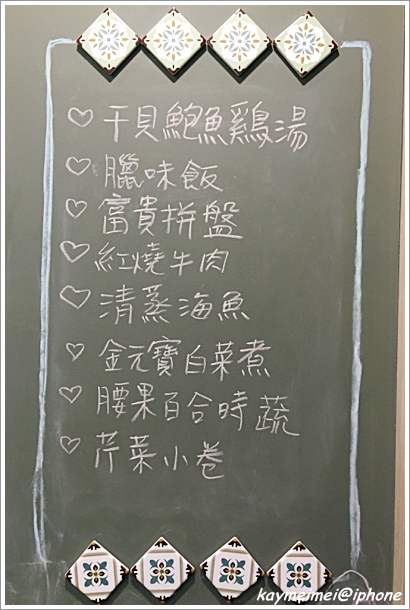 ♡干貝鮑魚鷄湯
♡臘味飯
♡富貴拼盤
♡紅燒牛肉
♡清蒸海魚
♡金元寶白菜煮
♡腰果百合時蔬
♡芹菜小卷
kaymeimei@iphone